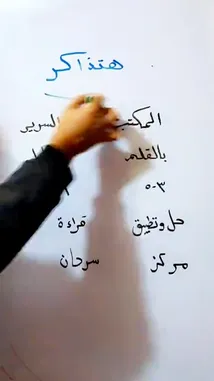 هتذاكر
المكتب السرير
بالقلم
٣-٥
حل وتطبيق قراءة
مركز سرحان